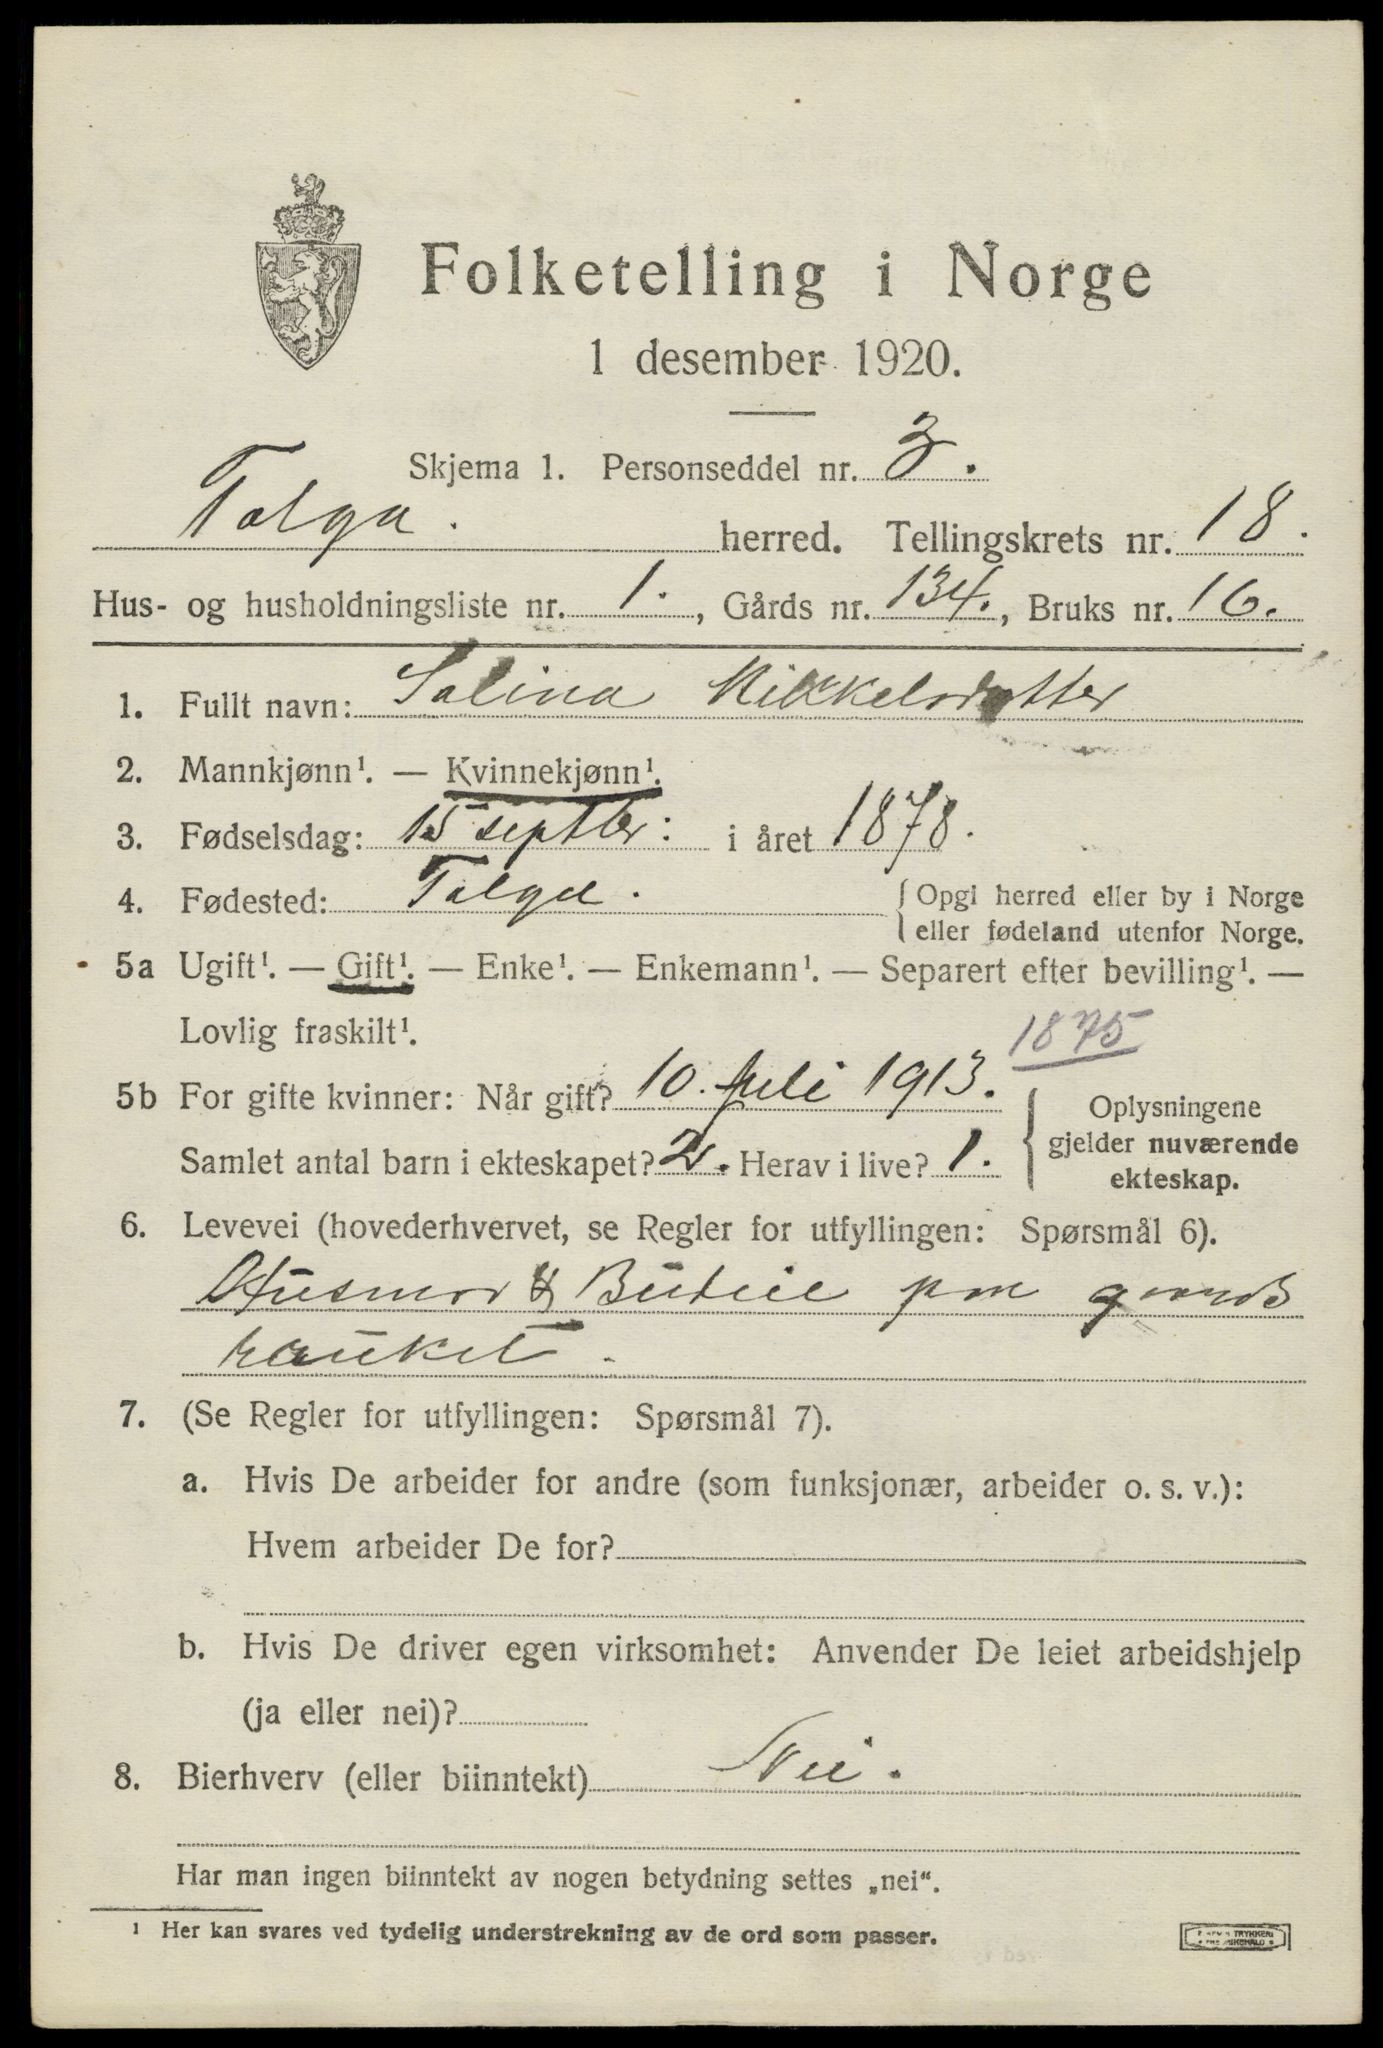 Folketelling i Norge
1 desember 1920.
Skjema 1. Personseddel nr. 3.
Tolga. herred. Tellingskrets nr. 18.
Hus- og husholdningsliste nr. 1., Gårds nr. 134., Bruks nr. 16.
1. Fullt navn: Salina Mikkelsdatter
2. Mannkjønn¹. — Kvinnekjønn¹.
3. Fødselsdag: 15 septbr: i året 1878.
4. Fødested: Tolga. { Opgi herred eller by i Norge
eller fødeland utenfor Norge.
5a Ugift¹. — Gift¹. — Enke¹. — Enkemann¹. — Separert efter bevilling¹. —
Lovlig fraskilt¹.
1875
5b For gifte kvinner: Når gift? 10. Juli 1913.
Samlet antal barn i ekteskapet? 2. Herav i live? 1.
{ Oplysningene
gjelder nuværende
ekteskap.
6. Levevei (hovederhvervet, se Regler for utfyllingen: Spørsmål 6).
Husmor & Budeie paa gaards
bruket.
7. (Se Regler for utfyllingen: Spørsmål 7).
a. Hvis De arbeider for andre (som funksjonær, arbeider o. s. v.):
Hvem arbeider De for?
b. Hvis De driver egen virksomhet: Anvender De leiet arbeidshjelp
(ja eller nei)?
8. Bierhverv (eller biinntekt) Nei.
Har man ingen biinntekt av nogen betydning settes „nei".
¹ Her kan svares ved tydelig understrekning av de ord som passer.